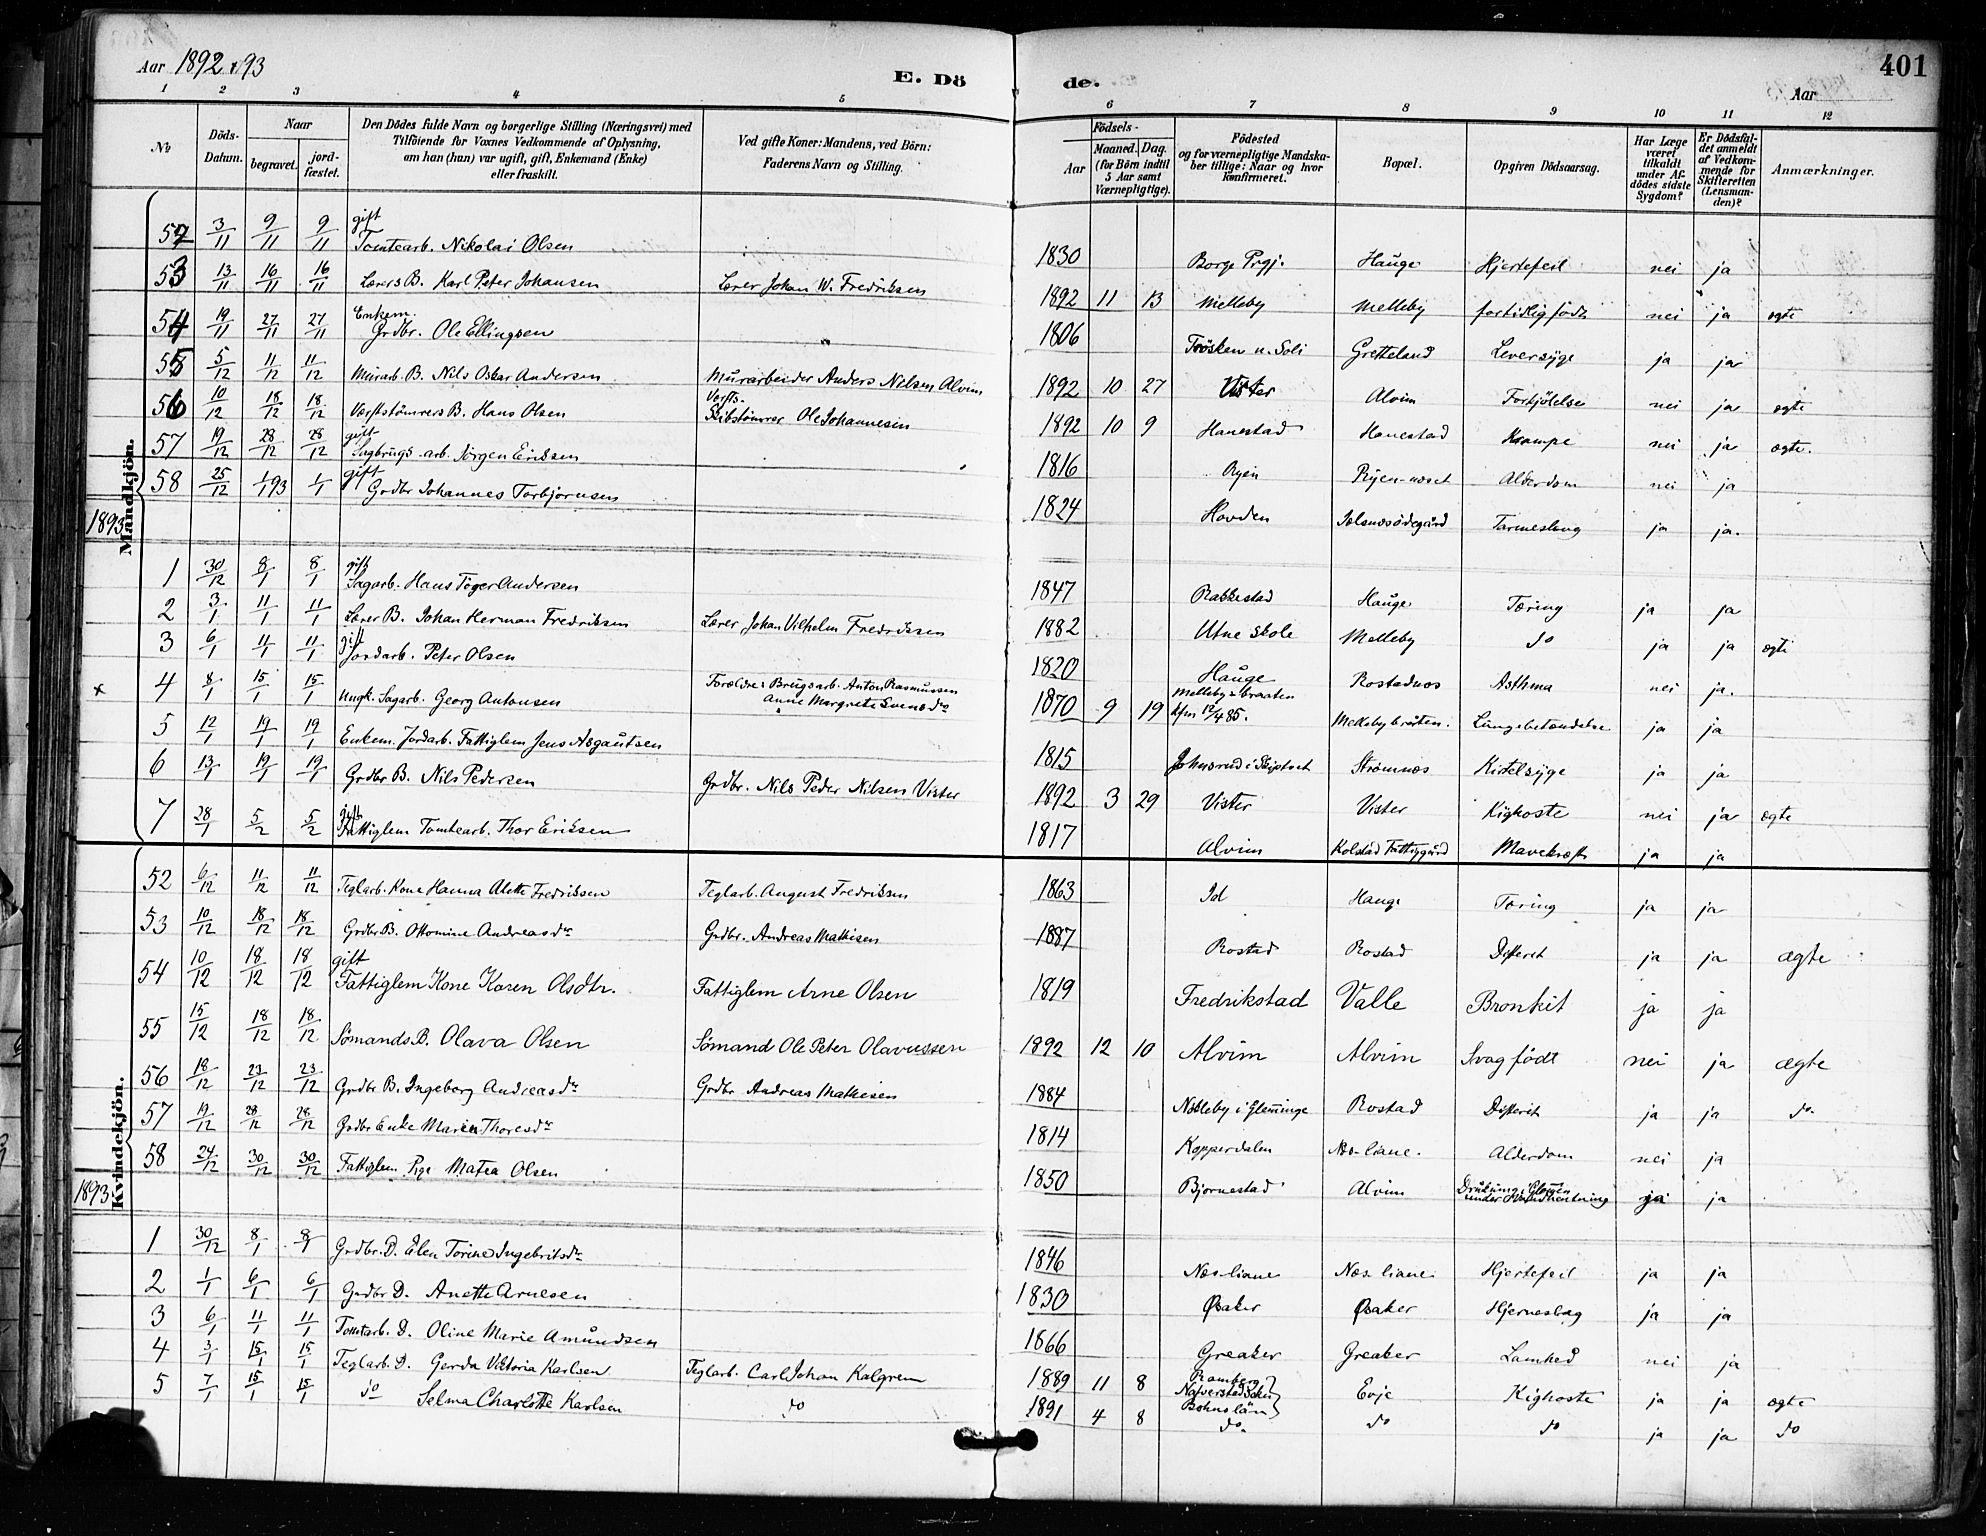 Aar 1892 & 93 E. Dö de. Aar 401
1 2 3 4 5 6 7 8 9 10 11 12
No Döds-Datum. Naar begravet. jord-fæstet. Den Dödes fulde Navn og borgerlige Stilling (Næringsvei) med Tilföiende for Voxnes Vedkommende af Oplysning, om han (hun) var ugift, gift, Enkemand (Enke) eller fraskilt. Ved gifte Koner: Mandens, ved Börn: Faderens Navn og Stilling. Födsels- Aar Maaned. Dag. (for Börn indtil 5 Aar samt Værnepligtige). Födested og for værnepligtige Mandskaber tillige: Naar og hvor konfirmeret. Bopæl. Opgiven Dödsaarsag. Har Læge været tilkaldt under Afdödes sidste Sygdom? Er Dödsfaldet anmeldt af Vedkommende for Skifteretten (Lensmanden)? Anmærkninger.
Mandkjön.
52 3/11 9/11 9/11 gift Tomtearb. Nikolai Olsen 1830 Borge Prgj. Hauge Hjertefeil nei ja
53 13/11 16/11 16/11 Lærers B. Karl Peter Johansen Lærer Johan W. Fredriksen 1892 11 13 Melleby Melleby fortidlig födt nei ja ægte
54 19/11 27/11 27/11 Enkem. Grdbr. Ole Ellingsen 1806 Tösken u. Soli Gretteland Leversyge ja ja
55 5/12 11/12 11/12 Murarb. B. Nils Oskar Andersen Murarbeider Anders Nilsen Alvim 1892 10 27 Vister Alvim Forkjölelse nei ja ægte
56 10/12 18/12 18/12 Værftstømrers B. Hans Olsen Værfts. Skibstömrer Ole Johannesen 1892 10 9 Hanestad Hanestad Krampe nei ja ægte.
57 19/12 28/12 28/12 gift Sagbrugs-arb. Jörgen Eriksen 1816 Ryen Ryen-næset Alderdom nei ja
58 25/12 1/1 93 1/1 gift Grdbr Johannes Torbjörnsen 1824 Hovden Tarmeslyng ja ja.
1893
1 30/12 8/1 8/1 gift Sagarb. Hans Töger Andersen 1847 Rakkestad Hauge Tæring ja ja
2 3/1 11/1 11/1 Lærer B. Johan Herman Fredriksen Lærer Johan Vilhelm Fredriksen 1882 Utne skole Melleby do ja ja ægte
3 6/1 11/1 11/1 gift Jordarb. Peter Olsen 1820 Hauge Rostadnæs Asthma nei ja.
x 4 8/1 15/1 15/1 Ungk. Sagarb. Georg Antonsen Forældre: Brugsarb. Anton Rasmussen Anne Margrete Svensdr 1870 9 19 Melleby braaten kfm 12/4 85. Mellebybråten. Lungebetændelse ja ja
5 12/1 19/1 19/1 Enkem. Jordarb. Fattiglem Jens Asgautsen 1815 Johnsrud i Skiptvet Strömnæs Kirtelsyge ja ja
6 13/1 19/1 19/1 Grdbr B. Nils Pedersen Grdbr. Nils Peder Nilsen Vister 1892 3 29 Vister Vister Kighoste nei ja ægte
7 28/1 5/2 5/2 gift Fattiglem Tomtearb. Thor Eriksen 1817 Alvim Kolstad Fattiggård Mavekræft ja ja
Kvindekjön.
52 6/12 11/12 11/12 Teglarb. Kone Hanna Alette Fredriksen Teglarb. August Fredriksen 1863 Id Hauge Tæring ja ja
53 10/12 18/12 18/12 Grdbr. B. Ottomine Andreasdr Grdbr. Andreas Mathisen 1887 Rostad Rostad Difterit ja ja ægte
54 10/12 18/12 18/12 gift Fattiglem Kone Karen Olsdtr. Fattiglem Arne Olsen 1819 Fredrikstad Valle Bronkit ja ja
55 15/12 18/12 18/12 Sömands B. Olava Olsen Sömand Ole Peter Olavussen 1892 12 10 Alvim Alvim Svag födt nei ja ægte
56 18/12 23/12 23/12 Grdbr B. Ingeborg Andreasdr Grdbr Andreas Mathisen 1884 Nabbeby i Glemminge Rostad Difterit ja ja do
57 19/12 28/12 28/12 Grdbr Enke Maria Thoresdr 1814 Kopperdalen Næs-liane. Alderdom nei ja
58 24/12 30/12 30/12 Fattiglem Pige Matea Olsen 1850 Bjørnestad Alvim Drukning i Glommen under Vandhentning ja ja
1893
1 30/12 8/1 8/1 Grdbr. D. Elen Torine Ingebritsdr 1846 Næs-liane Næs-liane. Hjertefeil ja ja
2 1/1 6/1 6/1 Grdbr D. Anette Arnesen 1830 Øsaker Øsaker Hjerneslag ja ja
3 6/1 11/1 11/1 Tomtarb. D. Oline Marie Amundsen 1866 Greaker Greaker Lamhed nei ja
4 3/1 15/1 15/1 Teglarb. D. Gerda Viktoria Karlsen Teglarb. Carl Johan Kalgren 1889 11 8 Ramberg Naverstad Sokn Bohuslän Evje Kighoste ja ja ægte
5 7/1 15/1 15/1 do Selma Charlotte Karlsen do 1891 4 8 do. do do ja ja do